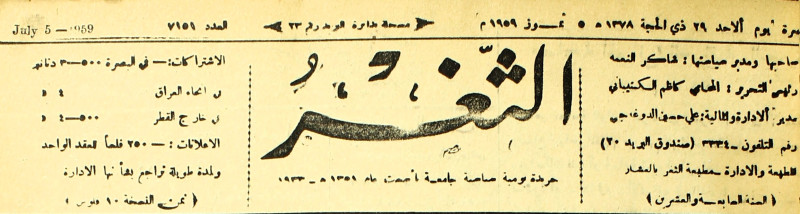 يوم الاحد ٢٩ ذي الحجة ١٣٧٨ ه ٥ تموز ١٩٥٩ م
مسجلة بدائرة البريد رقم ٢٣
العدد ٧١٥٩
July 5 — 1959
صاحبها ومدير سياستها : شاكر النعمه
رئيس التحرير : المحامي كاظم
مدير الادارة والمالية : علي حسين
رقم التلفون — ٣٣٣٤ (صندوق البريد ٢٠)
الطبعة والادارة — مطبعة الثغر بالعشار
الثغر
جريدة يومية سياسية جامعة تأسست عام ١٣٥١ ه — ١٩٣٣
الاشتراكات : — في البصرة ٥٠٠—٣ دنانير
في انحاء العراق ٤ »
في خارج القطر ٥٠٠—٤ »
الاعلانات : — ٢٥٠ فلساً للعقد الواحد
ولمدة طويلة تراجع بشأنها الادارة
( ثمن النسخة ١٠ فلوس )